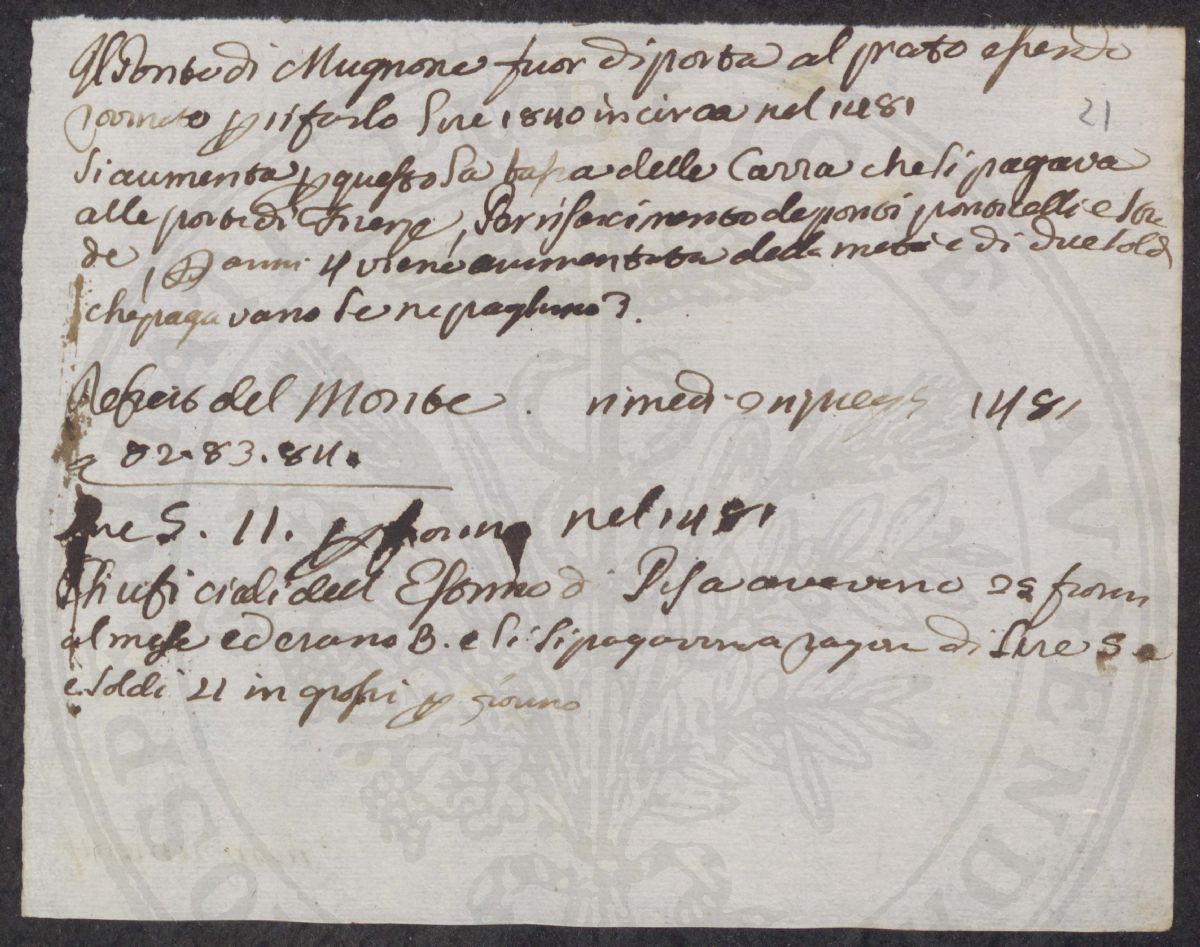 Il Ponte di Mugnone fuor di porta al prato essendo
rovinato p rifarlo Lire 1840 incirca nel 1481
21
Si aumenta p questo la tassa delle Carra che si pagava
alle porte di Firenze, Per risarcimento de ponti ponticelli e Stra
de, p anni 4 viene aumentata della metà e di due soldi
che pagavano se ne paghino 3.
del Monte. rimedi 1481
a 82.83.84.
Lire 5. 11. p fiorino nel 1481
Gli uficiali dell Estimo di Pisa avevano 22 fiorini
al mese ed erano 8. e li si pagavano a ragion di Lire 5
e Soldi 21 in grossi p fiorino